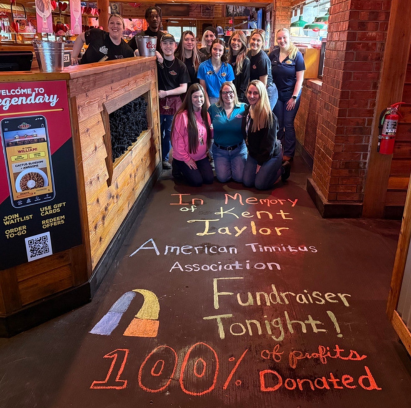 WELCOME TO
Legendary
JOIN
WAITLIST
ORDER
TO-GO
USE GIFT
CARDS
REDEEM
OFFERS
In Memory
of Kent
Taylor
American Tinnitus
Association
Fundraiser
Tonight!
100% of profits
Donated